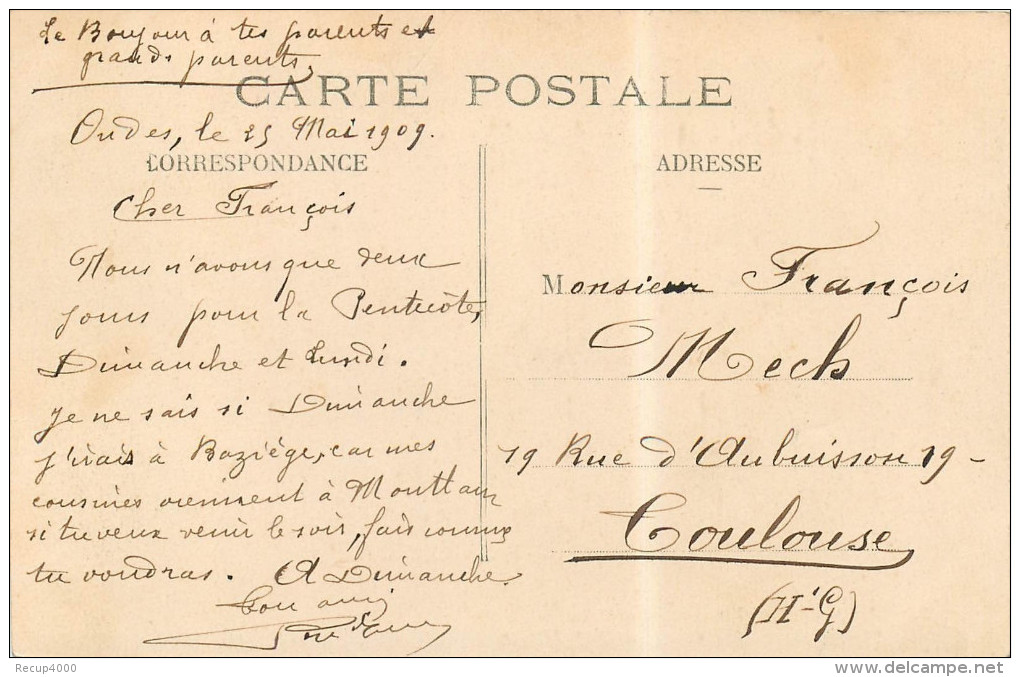 Le Bonjour à tes parents et
grands parents.
CARTE POSTALE
Ondes, le 25 Mai 1909.
CORRESPONDANCE
Cher François
Nous n'avons que deux
jours pour la Pentecôte,
Dimanche et Lundi.
Je ne sais si Dimanche
j'irais à Baziège, car mes
cousines viennent à
si tu veux venir le soir, fais comme
tu voudras. A Dimanche.
Ton ami
ADRESSE
Monsieur François
Mech
19 Rue d'Aubuisson 19-
Toulouse
(Hte-G)
Recup4000
delcampe.net